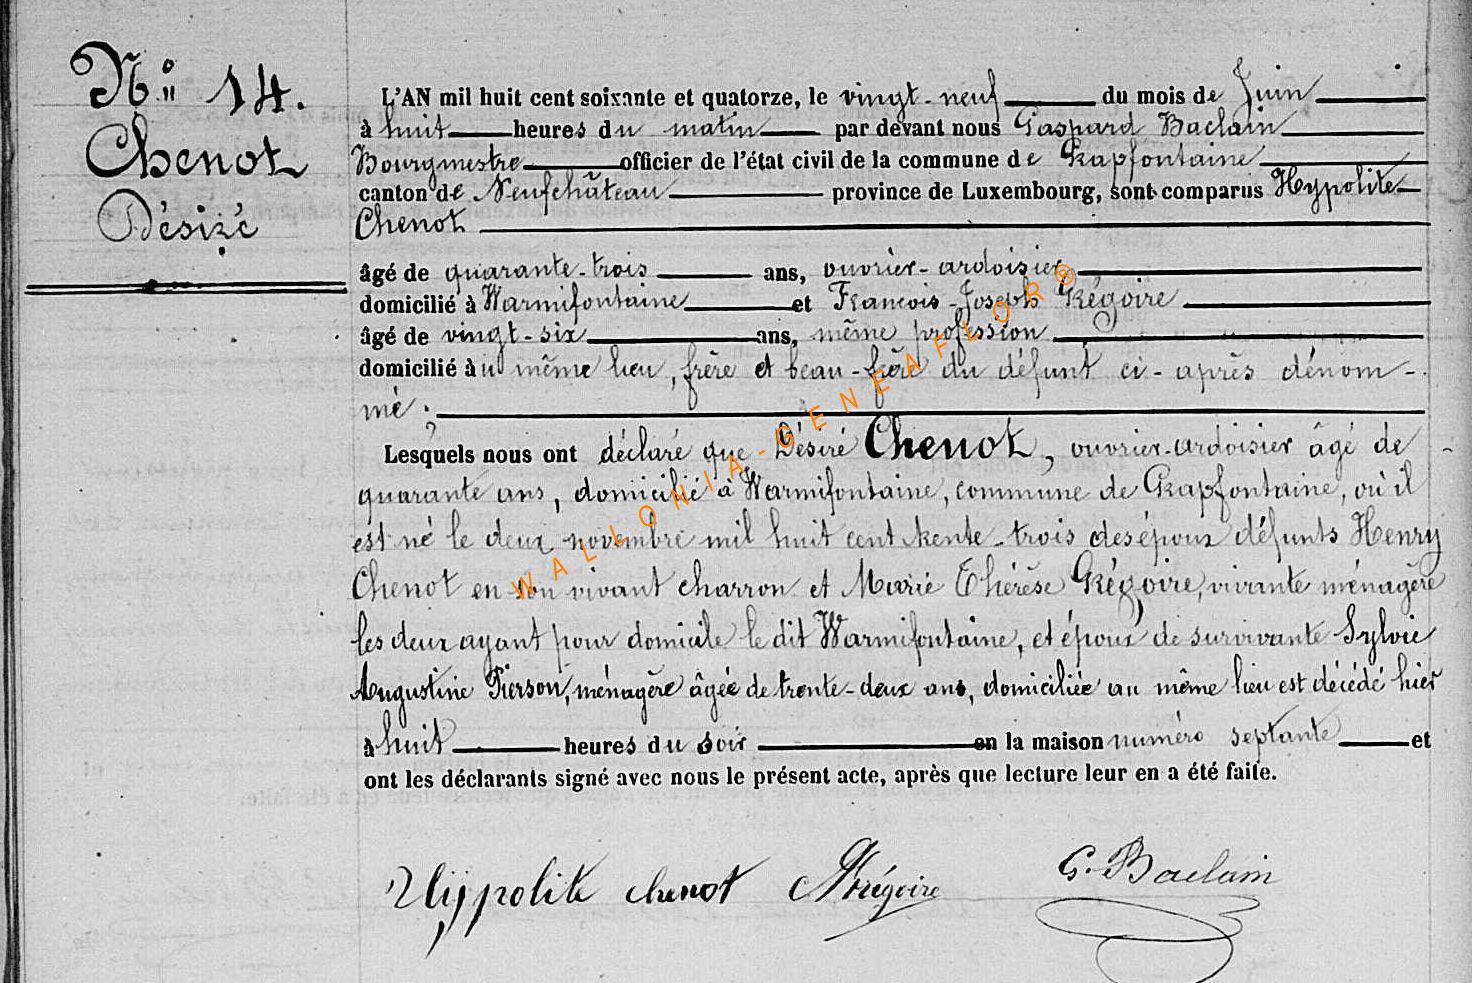 Nº 14.
Chenot
Désiré
L'AN mil huit cent soixante et quatorze, le vingt-neuf du mois de Juin
à huit heures du matin par devant nous Gaspard Baclain
Bourgmestre officier de l'état civil de la commune de Grapfontaine
canton de Neufchâteau province de Luxembourg, sont comparus Hypolite
Chenot
âgé de quarante-trois ans, ouvrier-ardoisier
domicilié à Warmifontaine et François-Joseph Grégoire
âgé de vingt-six ans, même profession
domicilié au même lieu, frère et beau-frère du défunt ci-après dénom-
mé.
Lesquels nous ont déclaré que Désiré Chenot, ouvrier-ardoisier âgé de
quarante ans, domicilié à Warmifontaine, commune de Grapfontaine, où il
est né le deux novembre mil huit cent trente-trois des époux défunts Henry
Chenot en son vivant charron et Marie Thérèse Grégoire, vivante ménagère
les deux ayant pour domicile le dit Warmifontaine, et époux de survivante Sylvie
Augustine Pierson, ménagère âgée de trente-deux ans, domiciliée au même lieu est décédé hier
à huit heures du soir en la maison numéro septante et
ont les déclarants signé avec nous le présent acte, après que lecture leur en a été faite.
Hyppolite chenot Grégoire G. Baclain
WALLONIA-GENEAFLOR®